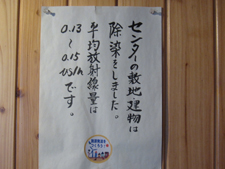 センターの敷地・建物は
除染をしました。
平均放射線量は
0.13
～
0.15
μS/h
です。